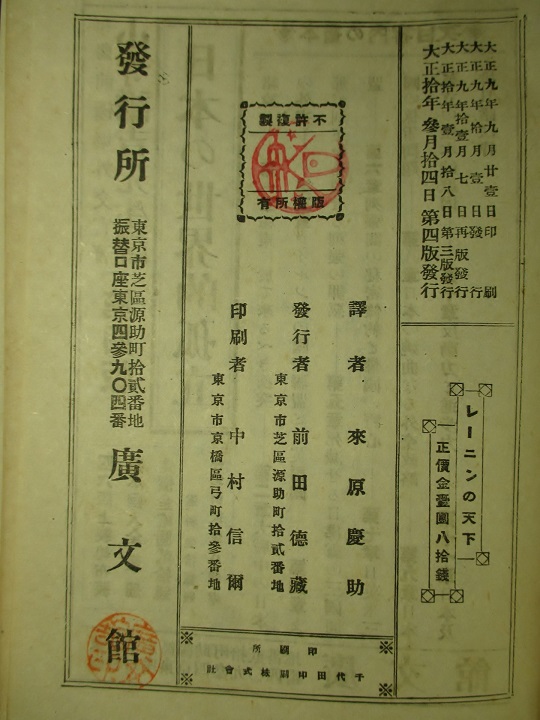 大正九年九月廿壹日印刷
大正九年拾月壹日發行
大正九年拾壹月七日再版發行
大正拾年壹月拾八日第三版發行
大正拾年參月拾四日第四版發行
レーニンの天下
正價金壹圓八拾錢
不許複製
版權所有
譯者 來原慶助
發行者 前田德藏
東京市芝區源助町拾貳番地
印刷者 中村信爾
東京市京橋區弓町拾參番地
印刷所
千代田印刷株式會社
發行所 廣文館
東京市芝區源助町拾貳番地
振替口座東京四參九〇四番